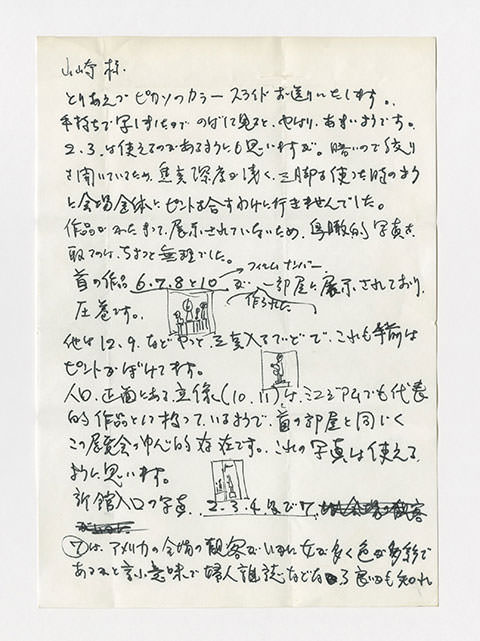 山崎様.
とりあえず ピカソのカラー スライド お送りいたします。
手持ちで写しましたので のばして見ると、やはり、あまいようです。
2.3.は使えるのがあるようにも思いますが。暗いので絞り
を開いているため、焦点深度が浅く、三脚を使った時のよう
に会場全体にピントを合すわけに行きませんでした。
作品がかたまって、展示されていないため、鳥瞰的写真を
取るのは、ちょっと無理でした。
フィルムナンバー
首の作品 6.7.8と10 が 一部屋に展示されており、
作られた
圧巻です。
他は12.9.など やっと、三点入るていどで、これも手前は
ピントがぼけてます。
入口、正面にある立体、(10.11)は、ミュージアムでも代表
的作品として扱っているようで、首の部屋と同じく
この展覧会の中心的存在です。これの写真は使える
ように思います。
新館入口の写真. 2.3.4.及び7.
⑦は、アメリカの会場の観客がいるに女が多く色が多彩で
あると言う意味で婦人雑誌などなら良いかも知れ